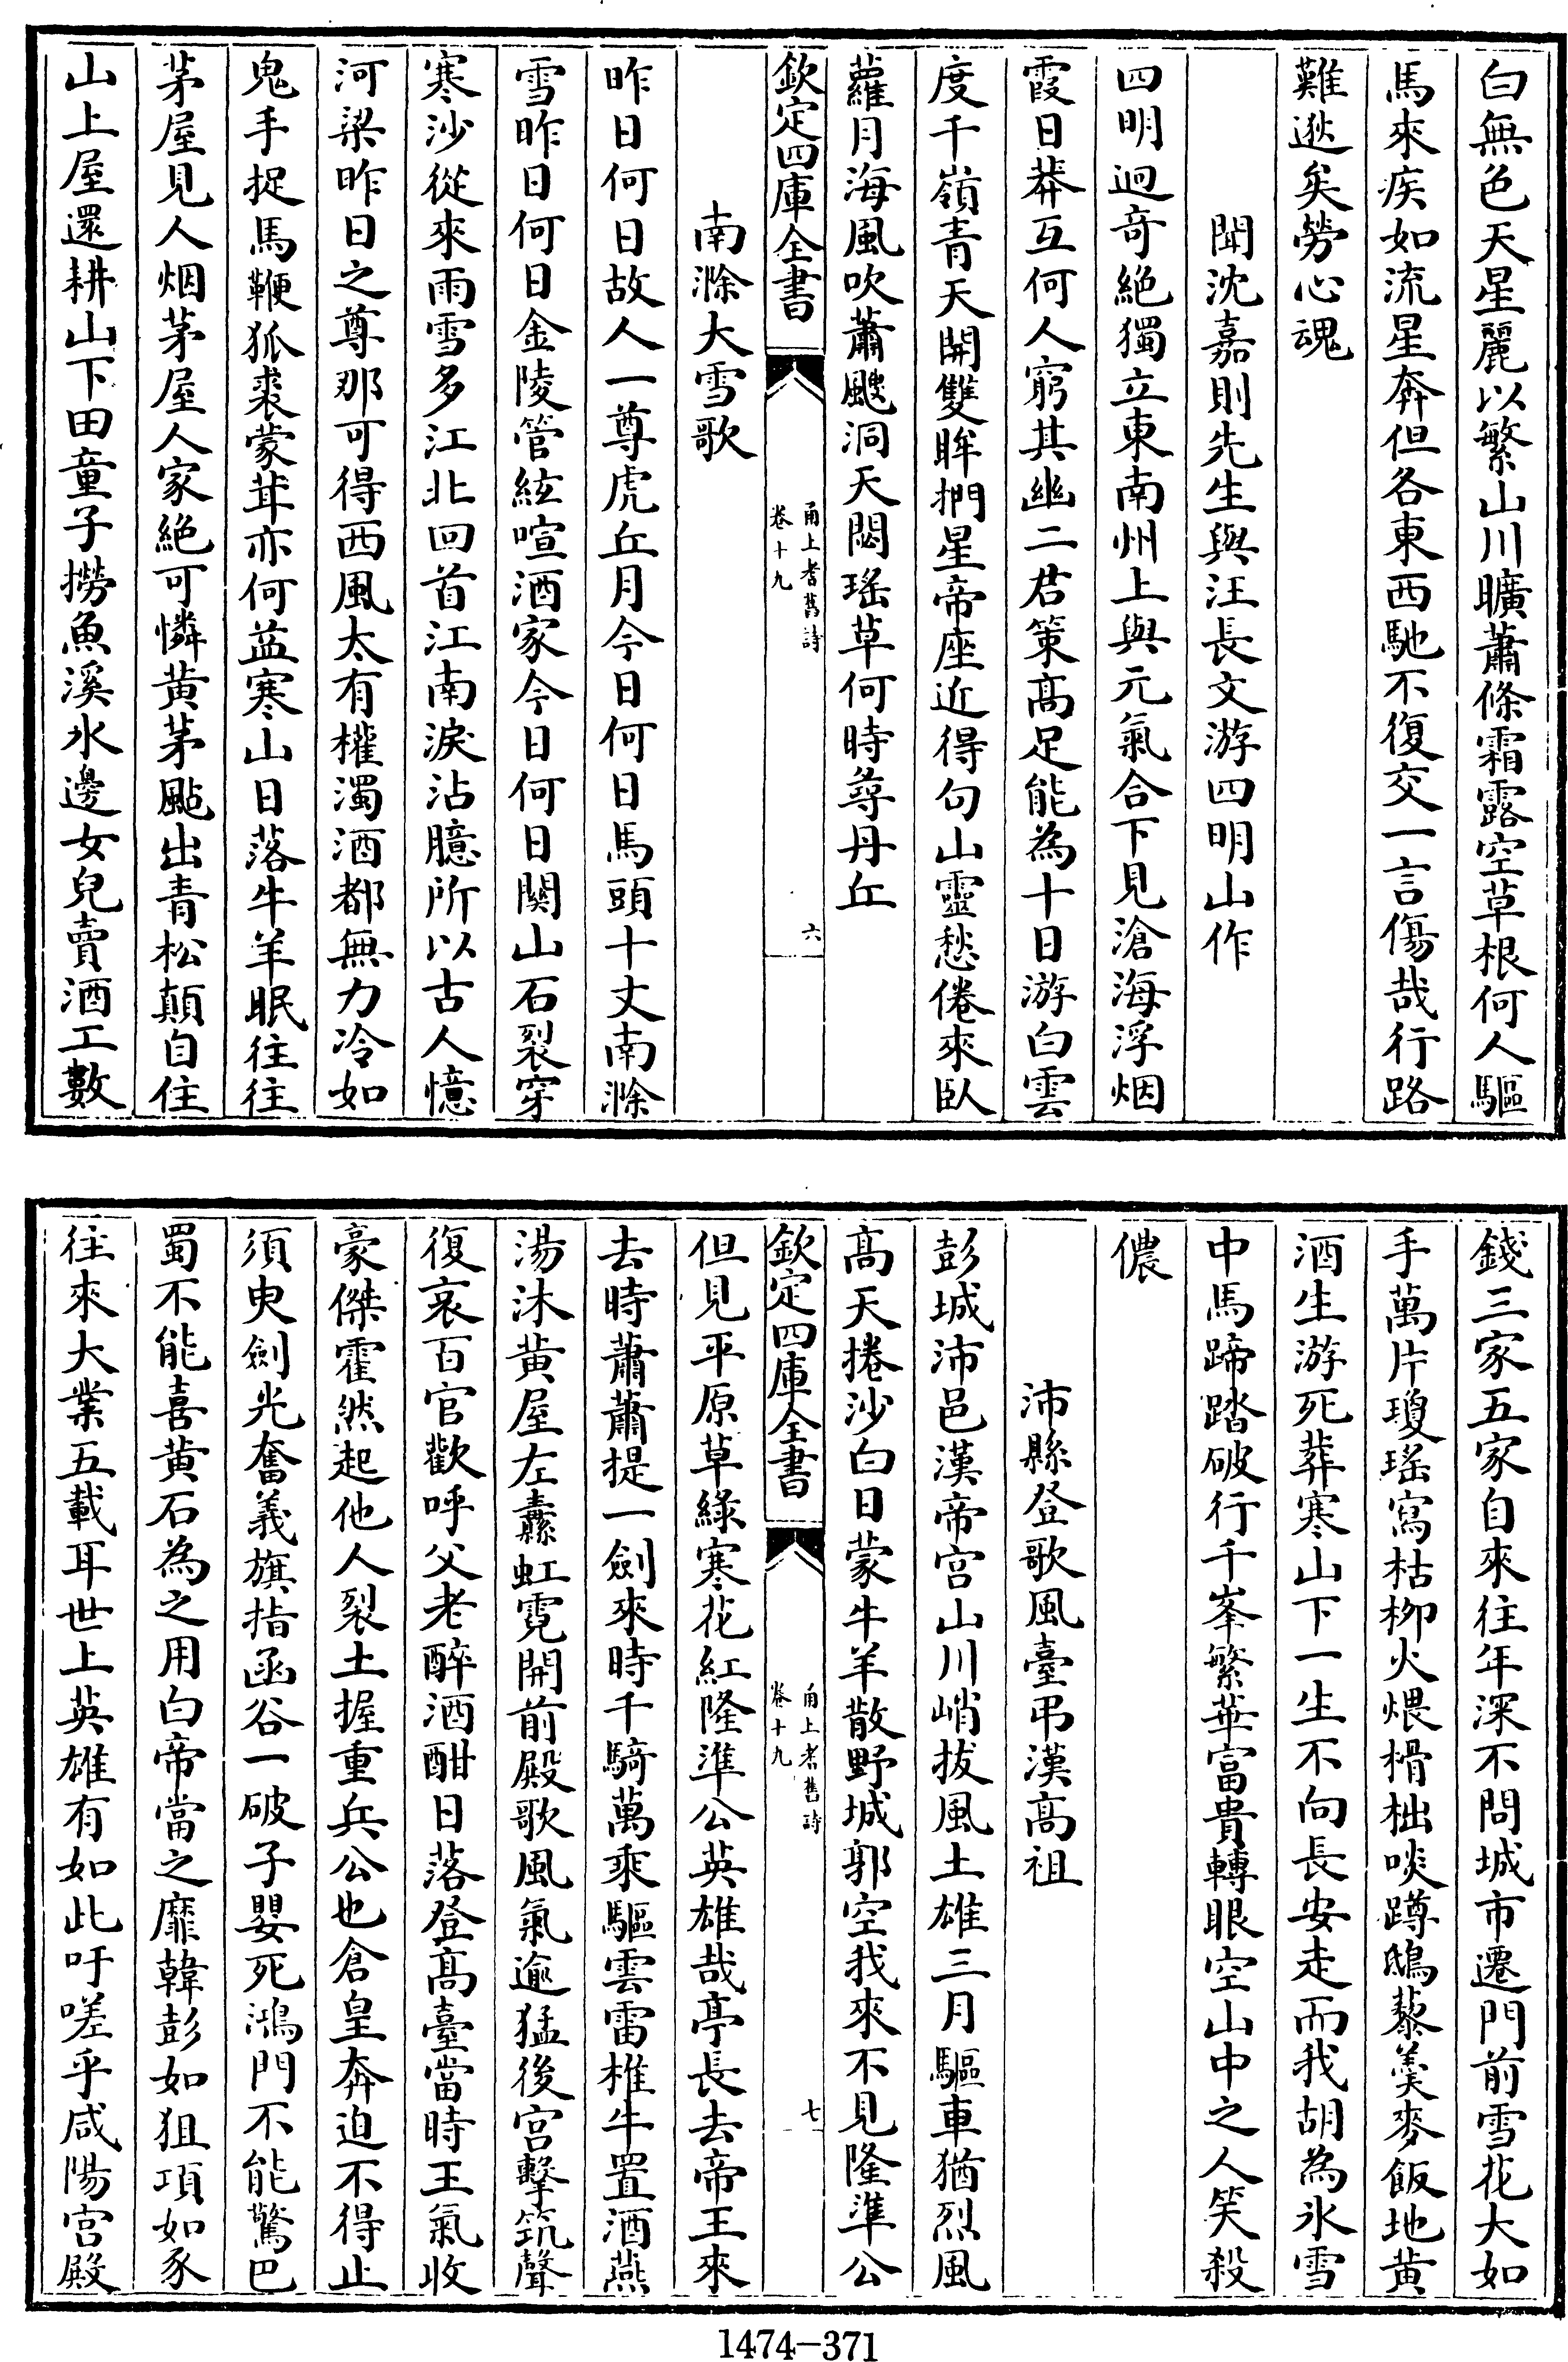 白無色天星麗以繁山川曠蕭條霜露空草根何人驅
馬來疾如流星奔但各東西馳不復交一言傷哉行路
難逖矣勞心魂
聞沈嘉則先生與汪長文游四明山作
四明迥奇絶獨立東南州上與元氣合下見滄海浮烟
霞日莽互何人窮其幽二君策高足能為十日游白雲
度千嶺青天開雙眸捫星帝座近得句山靈愁倦來臥
蘿月海風吹蕭颼洞天閟瑤草何時尋丹丘
欽定四庫全書
甬上耆舊詩
卷十九
六
南滁大雪歌
昨日何日故人一尊虎丘月今日何日馬頭十丈南滁
雪昨日何日金陵管絃喧酒家今日何日關山石裂穿
寒沙從來雨雪多江北回首江南淚沾臆所以古人憶
河梁昨日之尊那可得西風太有權濁酒都無力冷如
鬼手捉馬鞭狐裘蒙茸亦何益寒山日落牛羊眠往往
茅屋見人烟茅屋人家絶可憐黃茅颭出青松顛自住
山上屋還耕山下田童子撈魚溪水邊女兒賣酒工數
錢三家五家自來往年深不問城市遷門前雪花大如
手萬片瓊瑤寫枯柳火煨榾柮啖蹲鴟藜羮麥飯地黃
酒生游死葬寒山下一生不向長安走而我胡為氷雪
中馬蹄踏破行千峯繁華富貴轉眼空山中之人笑殺
儂
沛縣登歌風臺弔漢高祖
彭城沛邑漢帝宫山川峭拔風土雄三月驅車猶烈風
高天捲沙白日蒙牛羊散野城郭空我來不見隆準公
欽定四庫全書
甬上耆舊詩
卷十九
七
但見平原草綠寒花紅隆準公英雄哉亭長去帝王來
去時蕭蕭提一劍來時千騎萬乘驅雲雷椎牛置酒燕
湯沐黃屋左纛虹霓開前殿歌風氣逾猛後宫擊筑聲
復哀百官歡呼父老醉酒酣日落登高臺當時王氣收
豪傑霍然起他人裂土握重兵公也倉皇奔迫不得止
須臾劍光奮義旗指函谷一破子嬰死鴻門不能驚巴
蜀不能喜黃石為之用白帝當之靡韓彭如狙項如豕
往來大業五載耳世上英雄有如此吁嗟乎咸陽宫殿
1474—371